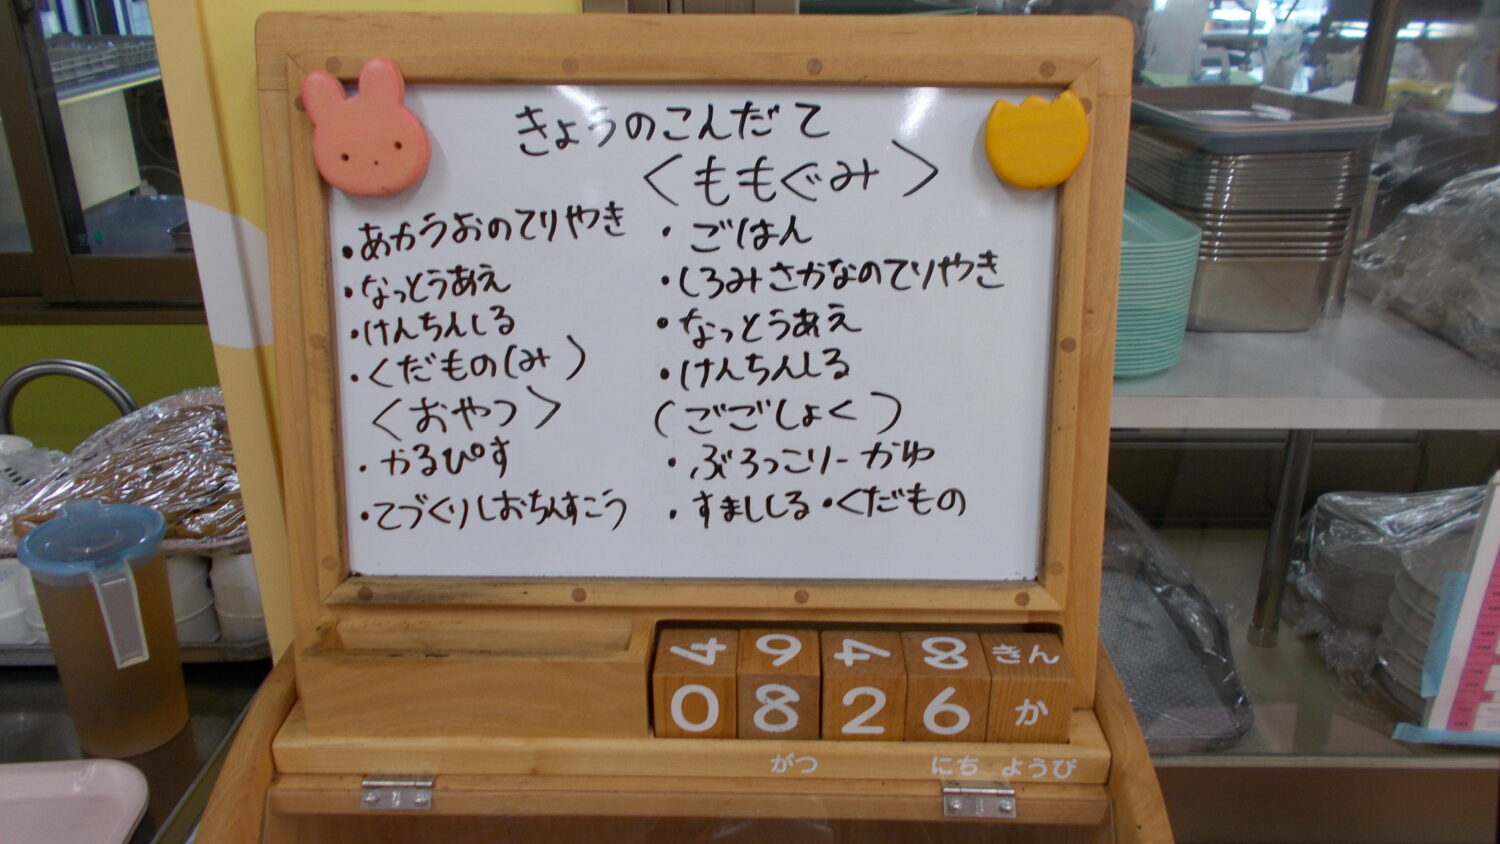 きょうのこんだて
<ももぐみ>
・あかうおのてりやき
・なっとうあえ
・けんちんしる
・くだもの(み)
<おやつ>
・かるぴす
・てづくりしおちんすこう
・ごはん
・しろみさかなのてりやき
・なっとうあえ
・けんちんしる
(ごごしょく)
・ぶろっこりーがゆ
・すまししる・くだもの
4 6 4 8 きん
0 8 2 6 か
がつ にち ようび